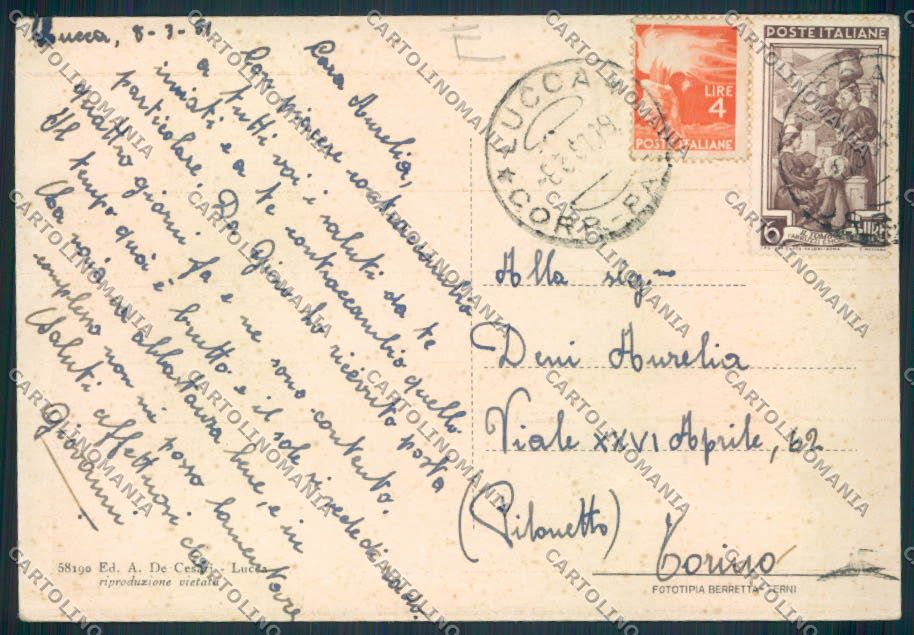 Lucca, 8-3-51
Cara Aurelia,
Con piacere contraccambio
a tutti voi i saluti da te
inviati e a te contraccambio quello
particolare. Da Gino ho ricevuto posta
quattro giorni fa e ne sono contento.
Il tempo qui è brutto e il sole si vede di rado.
La nona va abbastanza bene, e in
complesso non mi posso lamentare
Saluti affettuosi da
Giovanni
LUCCA
CORR-PA
LIRE
4
POSTE ITALIANE
POSTE ITALIANE
6
LIRE
IL TOMBOLO
Alla sig.na
Deni Aurelia
Viale XXVI Aprile, 62
(Pilonetto)
Torino
58190 Ed. A. De Cesari - Lucca
riproduzione vietata
FOTOTIPIA BERRETTA-TERNI
CARTOLINOMANIA